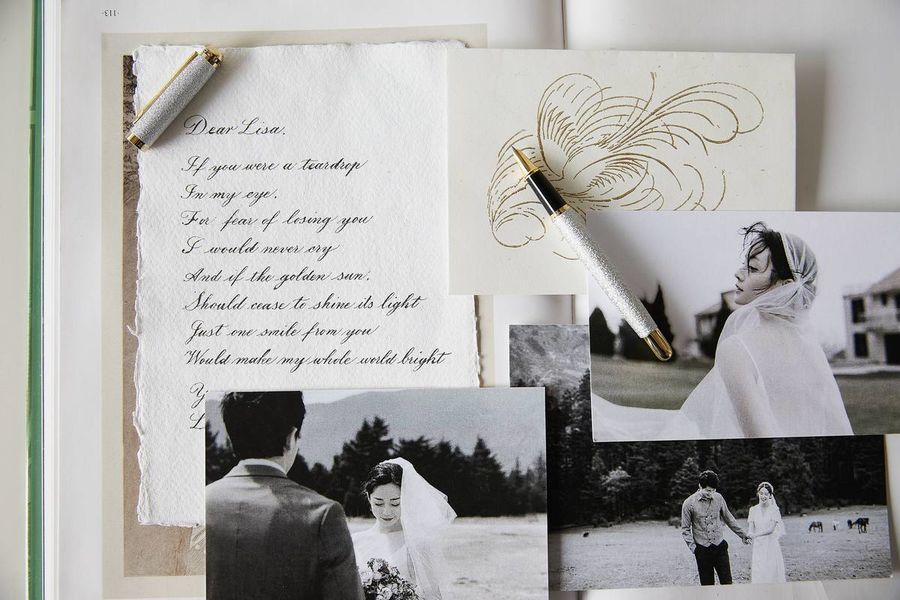 ·113·
Dear Lisa,
If you were a teardrop
In my eye,
For fear of losing you
I would never cry
And if the golden sun,
Should cease to shine its light
Just one smile from you
Would make my whole world bright